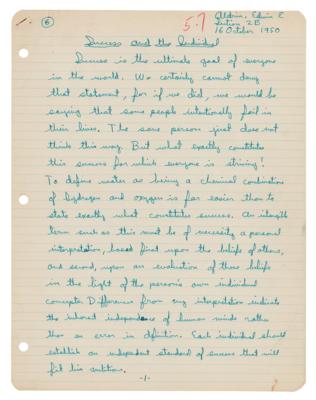 6
5.7
Aldrin, Edwin E
Section 2B
16 October 1950
Success and the Individual
Success is the ultimate goal of everyone
in the world. We certainly cannot deny
that statement, for if we did, we would be
saying that some people intentionally fail in
their lives. The sane person just does not
think this way. But what exactly constitutes
this success for which everyone is striving?
To define water as being a chemical combination
of hydrogen and oxygen is far easier than to
state exactly what constitutes success. An intangible
term such as this must be of necessity a personal
interpretation, based first upon the beliefs of others,
and second, upon an evaluation of those beliefs
in the light of the person's own individual
concepts. Differences from any interpretation indicate
the inherent independence of human minds rather
than an error in definition. Each individual should
establish an independent standard of success that will
fit his ambitions.
-1-